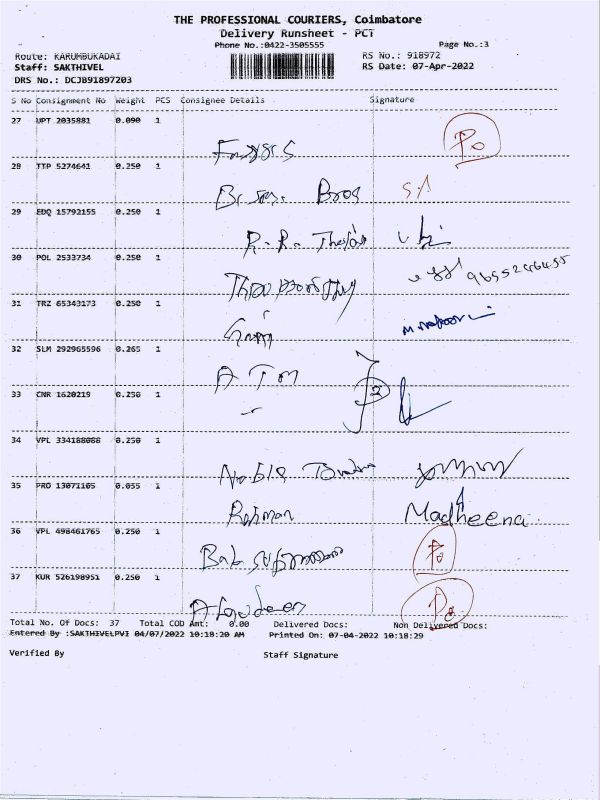 THE PROFESSIONAL COURIERS, Coimbatore
Delivery Runsheet - PCT
Phone No.:0422-3505555
Page No.:3
Route: KARUMBUKADAI
RS No.: 918972
Staff: SAKTHIVEL
RS Date: 07-Apr-2022
DRS No.: DCJB91897203
S No Consignment No Weight PCS Consignee Details Signature
27 UPT 2035881 0.090 1
Po
28 TTP 5274641 0.250 1
Bros
29 EDQ 15792155 0.250 1
R.R.
30 POL 2533734 0.250 1
31 TRZ 65343173 0.250 1
32 SLM 292965596 0.265 1
A T M
33 CNR 1620219 0.250 1
2
34 VPL 334188088 0.250 1
Noble
35 PRO 13071105 0.055 1
Rahman Madheena
36 VPL 498461765 0.250 1
Po
37 KUR 526198951 0.250 1
Alaudeen Po
Total No. Of Docs: 37 Total COD Amt: 0.00 Delivered Docs: Non Delivered Docs:
Entered By :SAKTHIVELPVI 04/07/2022 10:18:20 AM Printed On: 07-04-2022 10:18:29
Verified By Staff Signature